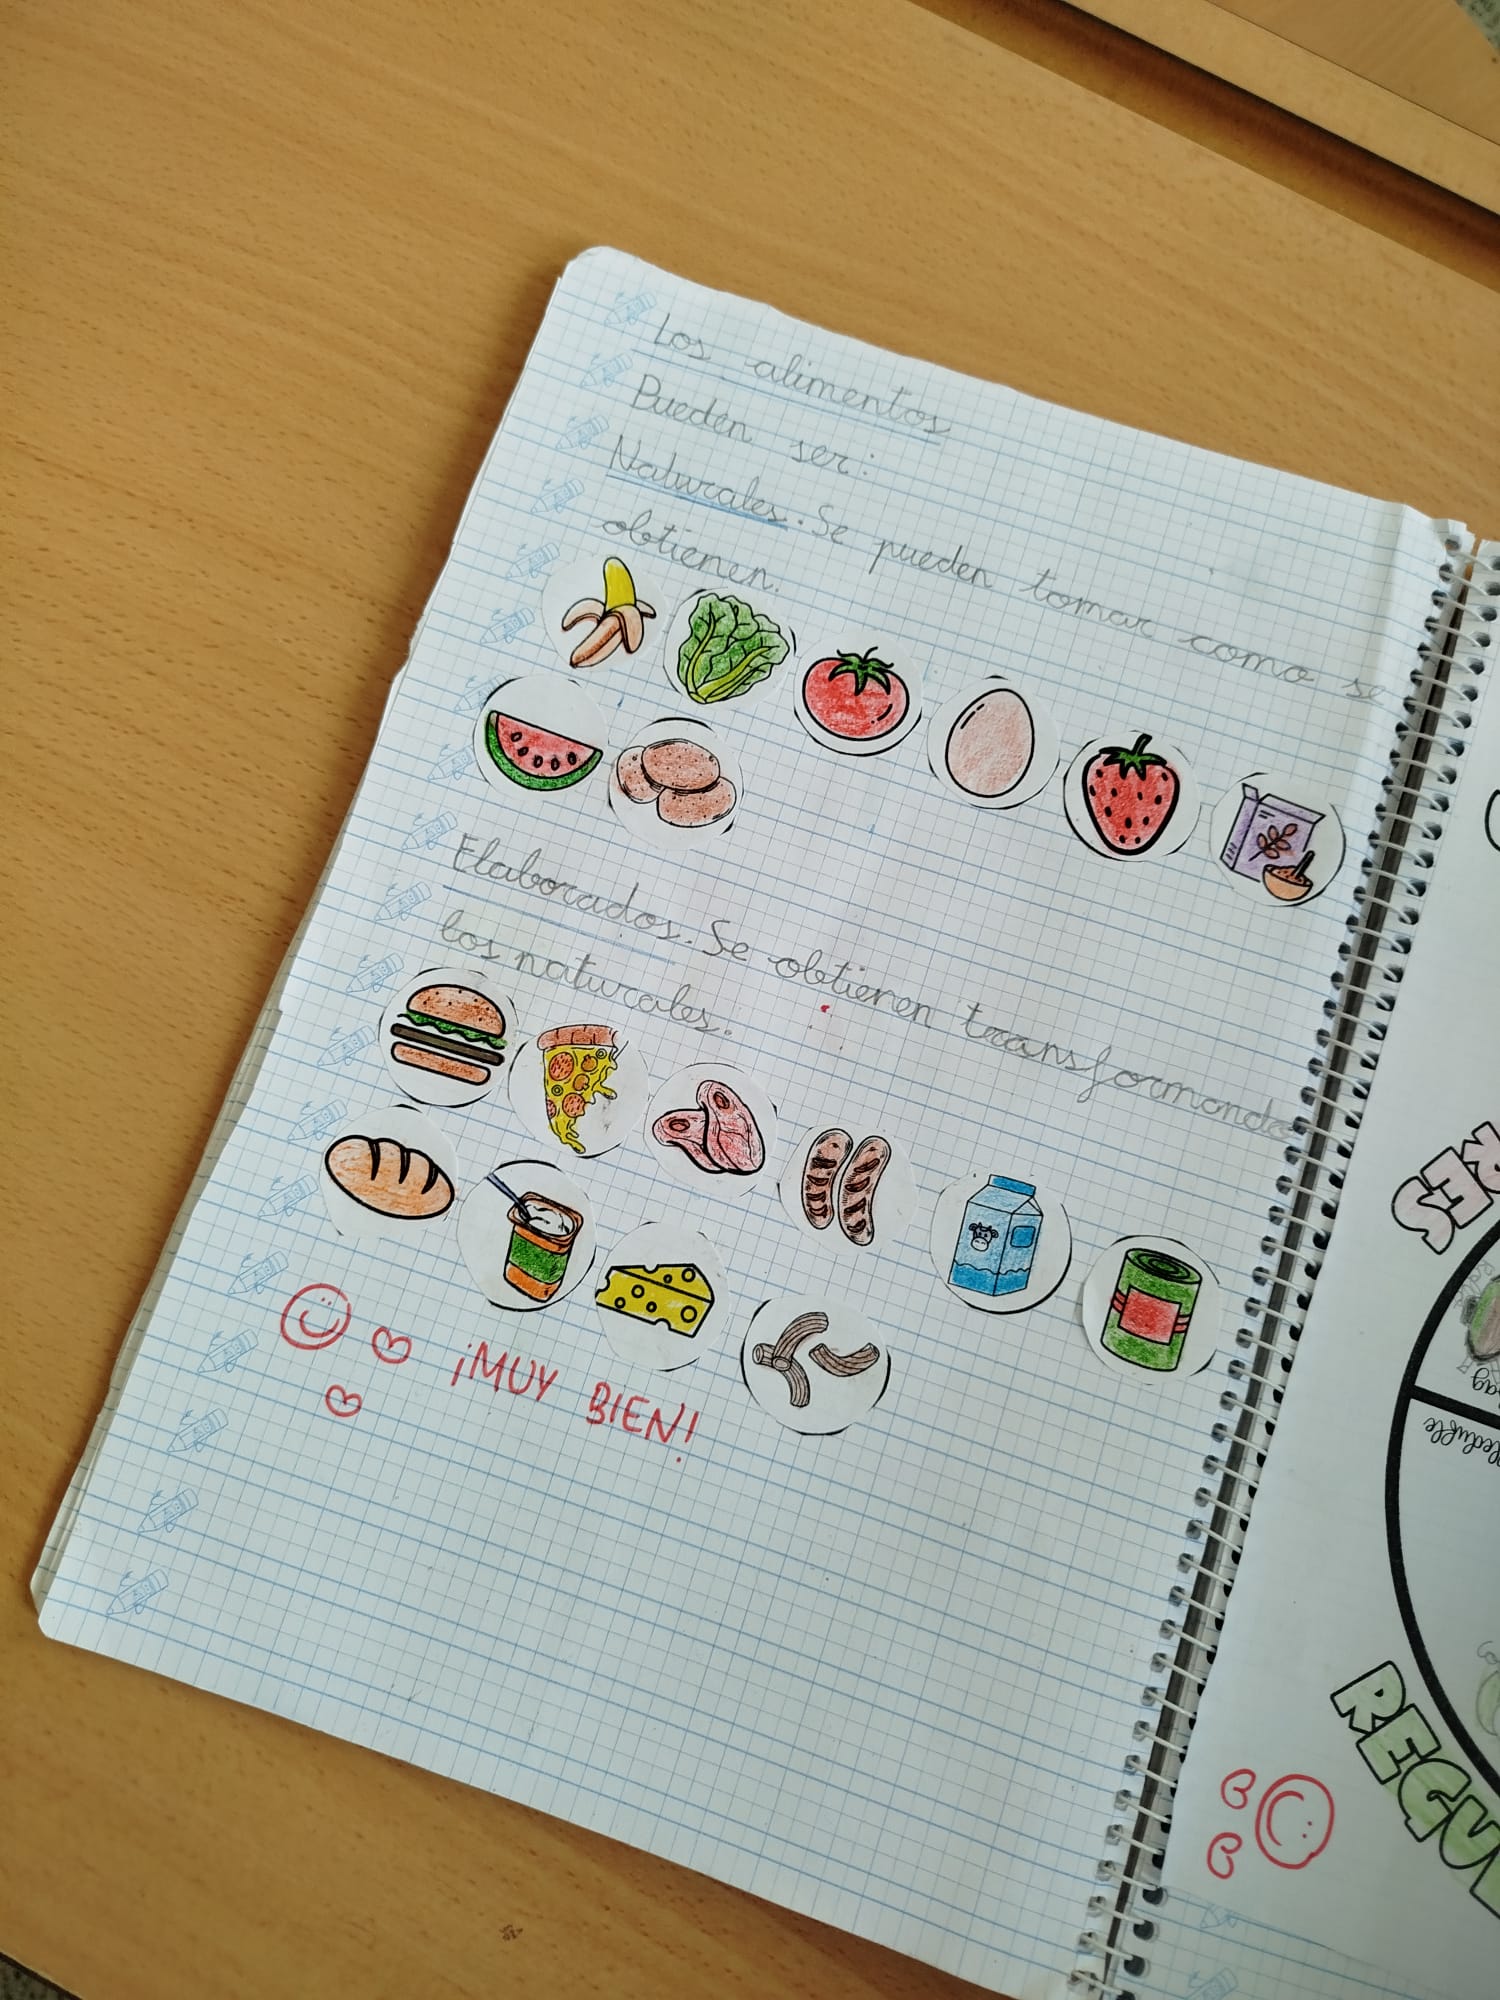 Los alimentos
Pueden ser:
Naturales. Se pueden tomar como se
obtienen.
Elaborados. Se obtienen transformando
los naturales.
¡MUY BIEN!
RES
REGU